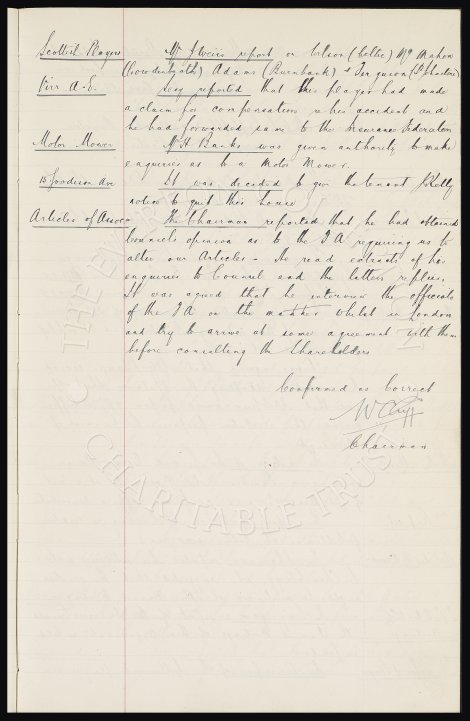 Scottish Players Mr J Weirs report on Wilson (Celtic) McMahon
(Cowdenbeath) Adams (Burnbank) & Ferguson (
Virr A.E. Secy reported that this player had made
a claim for compensation when accident and
he had forwarded same to the Insurance Federation
Motor Mower Mr H Banks was given authority to make
enquiries as to a Motor Mower.
Goodison Ave It was decided to give the tenant
notice to quit this house
Articles of Assoc The Chairman reported that he had obtained
Counsels opinion as to the F A requiring us to
alter our Articles - He read extracts of his
enquiries to Counsel and the latters replies.
It was agreed that he interview the officials
of the F A on the matter whilst in London
and try to arrive at some agreement with them
before consulting the Shareholders
Confirmed as Correct
W C Cuff
Chairman
© THE EVERTON
CHARITABLE TRUST